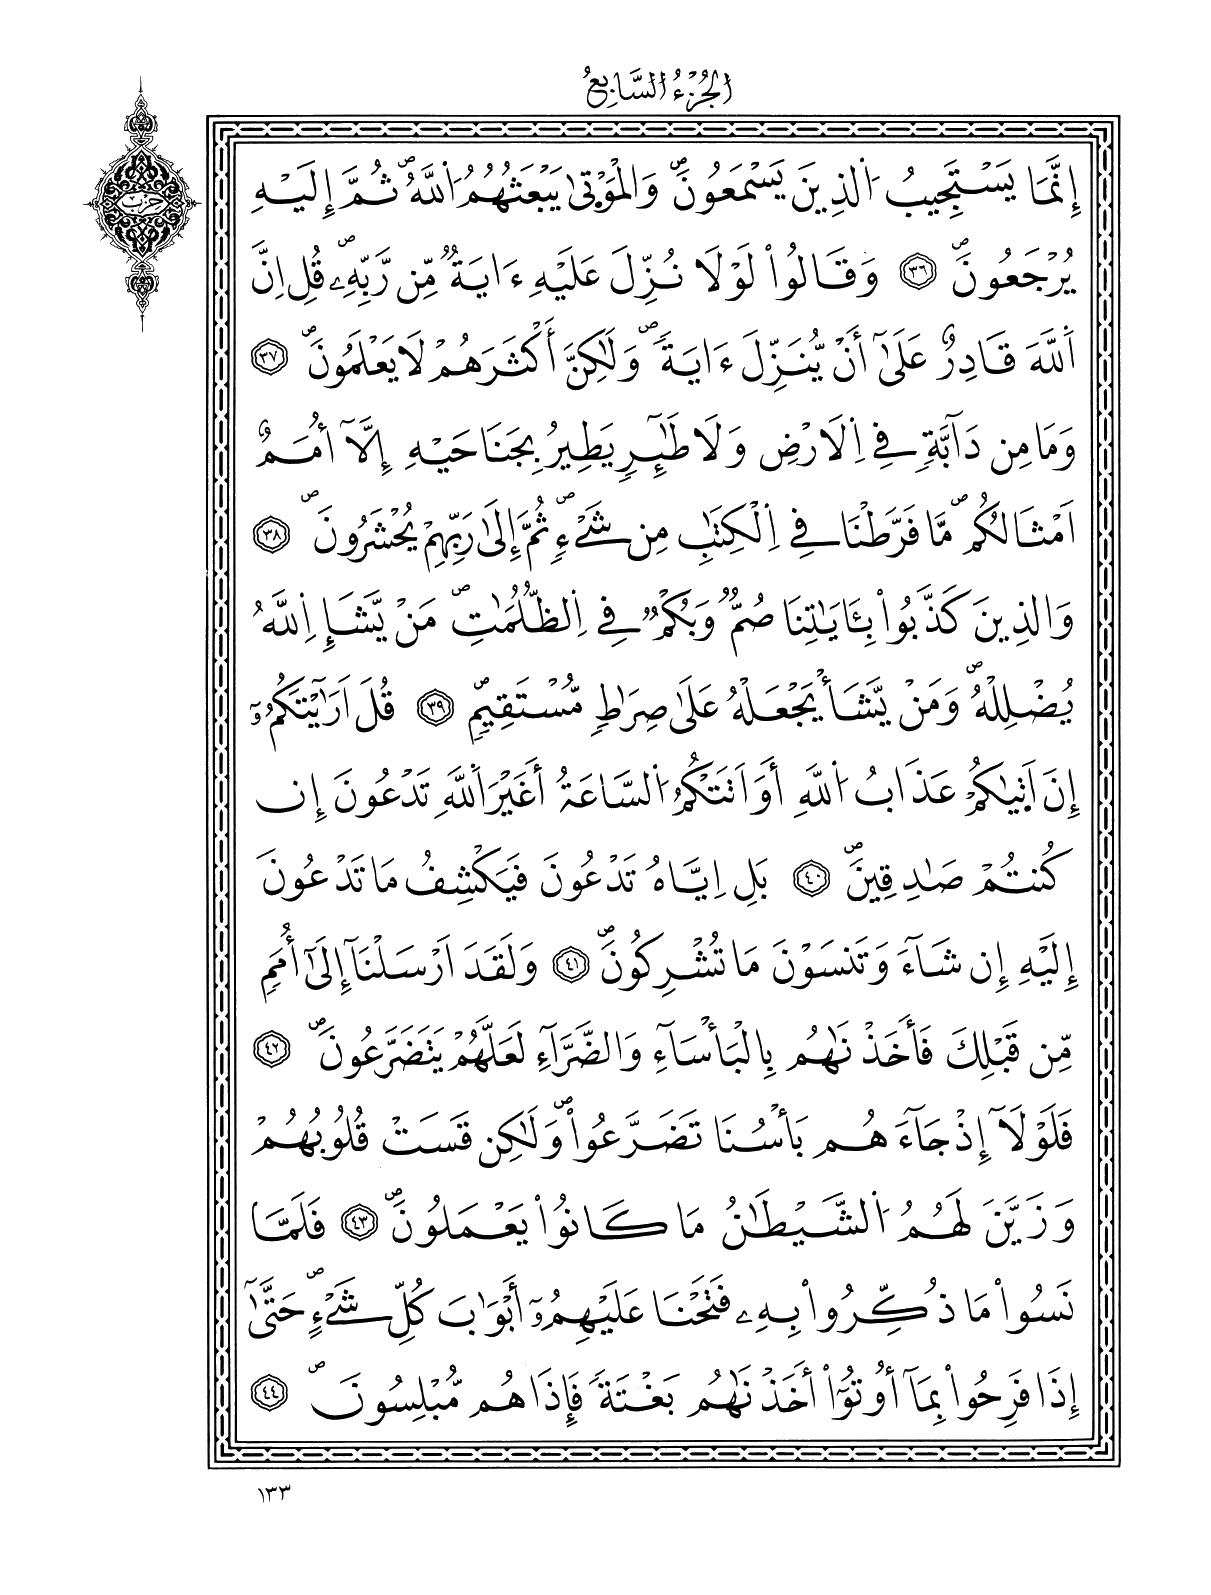 الجزء السابع
حزب
إِنَّمَا يَسْتَجِيبُ اَلذِينَ يَسْمَعُونَۖ وَالْمَوْتىٰ يَبْعَثُهُمُ اُللَّهُۖ ثُمَّ إِلَيْهِ
يُرْجَعُونَۖ ٣٦ وَقَالُواْ لَوْلَا نُزِّلَ عَلَيْهِ ءَايَةٌ مِّن رَّبِّهِۦۖ قُلِ اِنَّ
اَللَّهَ قَادِرٌ عَلَىٰٓ أَنْ يُّنَزِّلَ ءَايَةًۖ وَلَٰكِنَّ أَكْثَرَهُمْ لَا يَعْلَمُونَۖ ٣٧
وَمَا مِن دَآبَّةٍ فِے اِلَارْضِ وَلَا طَٰٓئِرٍ يَطِيرُ بِجَنَاحَيْهِ إِلَّآ أُمَمٌ
اَمْثَالُكُمۖ مَّا فَرَّطْنَا فِے اِلْكِتَٰبِ مِن شَےْءٍۖ ثُمَّ إِلَىٰ رَبِّهِمْ يُحْشَرُونَۖ ٣٨
وَالذِينَ كَذَّبُواْ بِـَٔايَٰتِنَا صُمٌّ وَبُكْمٌ فِے اِلظُّلُمَٰتِۖ مَنْ يَّشَإِ اِللَّهُ
يُضْلِلْهُۖ وَمَنْ يَّشَأْ يَجْعَلْهُ عَلَىٰ صِرَٰطٍ مُّسْتَقِيمٍۖ ٣٩ قُلَ اَرَٰٓيْتَكُمُۥٓ
إِنَ اَتٰىكُمْ عَذَابُ اُللَّهِ أَوَ اَتَتْكُمُ اُلسَّاعَةُ أَغَيْرَ اَللَّهِ تَدْعُونَ إِن
كُنتُمْ صَٰدِقِينَۖ ٤٠ بَلِ اِيَّاهُ تَدْعُونَ فَيَكْشِفُ مَا تَدْعُونَ
إِلَيْهِ إِن شَآءَ وَتَنسَوْنَ مَا تُشْرِكُونَۖ ٤١ وَلَقَدَ اَرْسَلْنَآ إِلَىٰٓ أُمَمٍ
مِّن قَبْلِكَ فَأَخَذْنَٰهُم بِالْبَأْسَآءِ وَالضَّرَّآءِ لَعَلَّهُمْ يَتَضَرَّعُونَۖ ٤٢
فَلَوْلَآ إِذْ جَآءَهُم بَأْسُنَا تَضَرَّعُواْۖ وَلَٰكِن قَسَتْ قُلُوبُهُمْ
وَزَيَّنَ لَهُمُ اُلشَّيْطَٰنُ مَا كَانُواْ يَعْمَلُونَۖ ٤٣ فَلَمَّا
نَسُواْ مَا ذُكِّرُواْ بِهِۦ فَتَحْنَا عَلَيْهِمُۥٓ أَبْوَٰبَ كُلِّ شَےْءٍۖ حَتَّىٰٓ
إِذَا فَرِحُواْ بِمَآ أُوتُوٓاْ أَخَذْنَٰهُم بَغْتَةً فَإِذَا هُم مُّبْلِسُونَۖ ٤٤
١٣٣